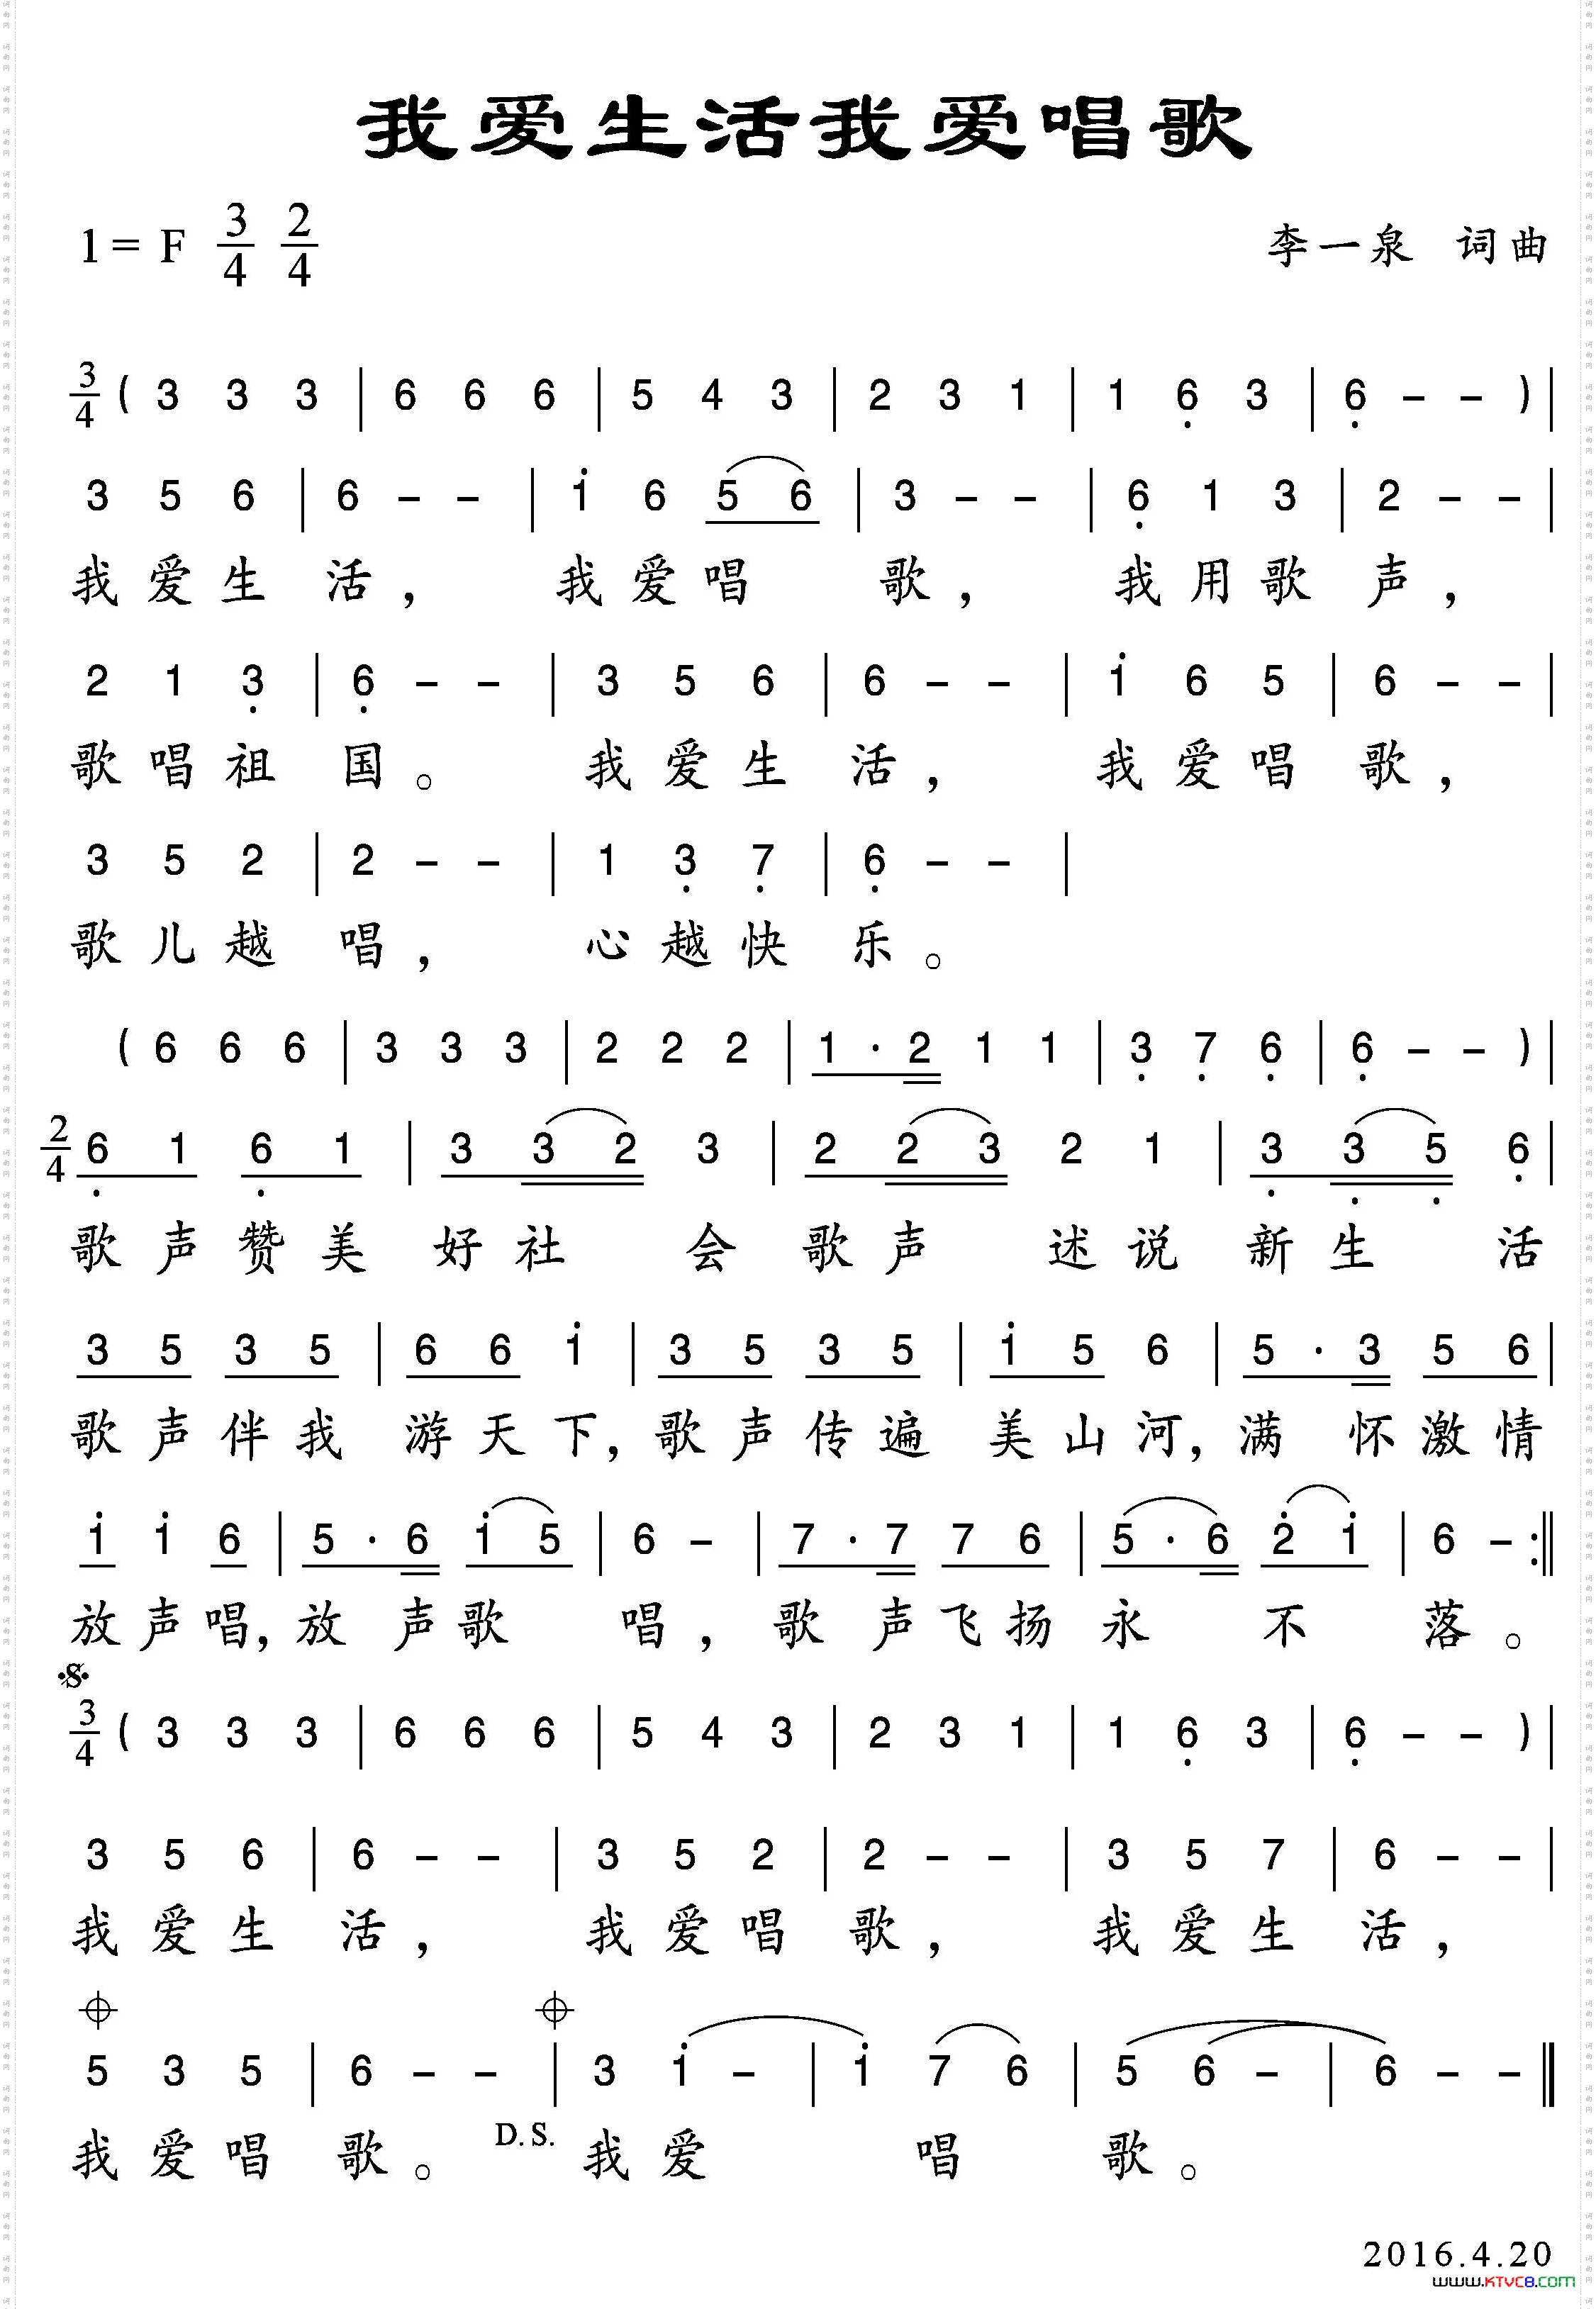 我爱生活我爱唱歌
1 = F 3/4 2/4 李一泉 词曲
3/4 ( 3 3 3 | 6 6 6 | 5 4 3 | 2 3 1 | 1 6̣ 3 | 6̣ – – ) |
3 5 6 | 6 – – | 1̇ 6 5 6 | 3 – – | 6̣ 1 3 | 2 – – |
我爱生 活， 我爱唱 歌， 我用歌 声，
2 1 3̣ | 6̣ – – | 3 5 6 | 6 – – | 1̇ 6 5 | 6 – – |
歌唱祖 国。 我爱生 活， 我爱唱 歌，
3 5 2 | 2 – – | 1 3̣ 7̣ | 6̣ – – |
歌儿越 唱， 心越快 乐。
( 6 6 6 | 3 3 3 | 2 2 2 | 1 · 2 1 1 | 3̣ 7̣ 6̣ | 6̣ – – ) |
2/4 6̣ 1 6̣ 1 | 3 3 2 3 | 2 2 3 2 1 | 3̣ 3̣ 5̣ 6̣ |
歌声赞美 好社 会 歌声 述说 新生 活
3 5 3 5 | 6 6 1̇ | 3 5 3 5 | 1̇ 5 6 | 5 · 3 5 6 |
歌声伴我 游天下，歌声传遍 美山河，满 怀激情
1̇ 1̇ 6 | 5 · 6 1̇ 5 | 6 – | 7 · 7 7 6 | 5 · 6 2̇ 1̇ | 6 – :‖
放声唱，放 声歌 唱， 歌 声飞扬 永 不 落。
𝄋
3/4 ( 3 3 3 | 6 6 6 | 5 4 3 | 2 3 1 | 1 6̣ 3 | 6̣ – – ) |
3 5 6 | 6 – – | 3 5 2 | 2 – – | 3 5 7 | 6 – – |
我爱生 活， 我爱唱 歌， 我爱生 活，
𝄌 𝄌
5 3 5 | 6 – – | 3 1̇ – | 1̇ 7 6 | 5 6 – | 6 – – ‖
我爱唱 歌。 D.S. 我爱 唱 歌。
2016.4.20
www.KTVC8.com